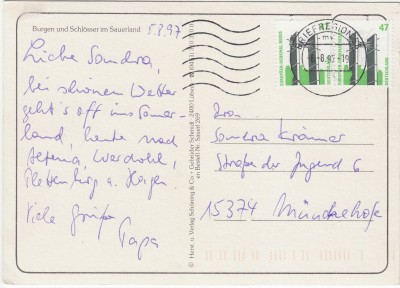 Burgen und Schlösser im Sauerland
5.8.97
Liebe Sandra,
bei schönem Wetter
geht's oft ins Sauer-
land, heute nach
Altena, Werdohl,
Plettenburg u. Hagen.
Viele Grüße
Papa
© Horst. u. Verlag Schöning & Co + Gebrüder Schmidt · 2400 Lübeck
Bestell-Nr. Sauerl 269
BRIEFREGION
47
Sandra Krämer
Straße der Jugend 6
15374 Münchehofe